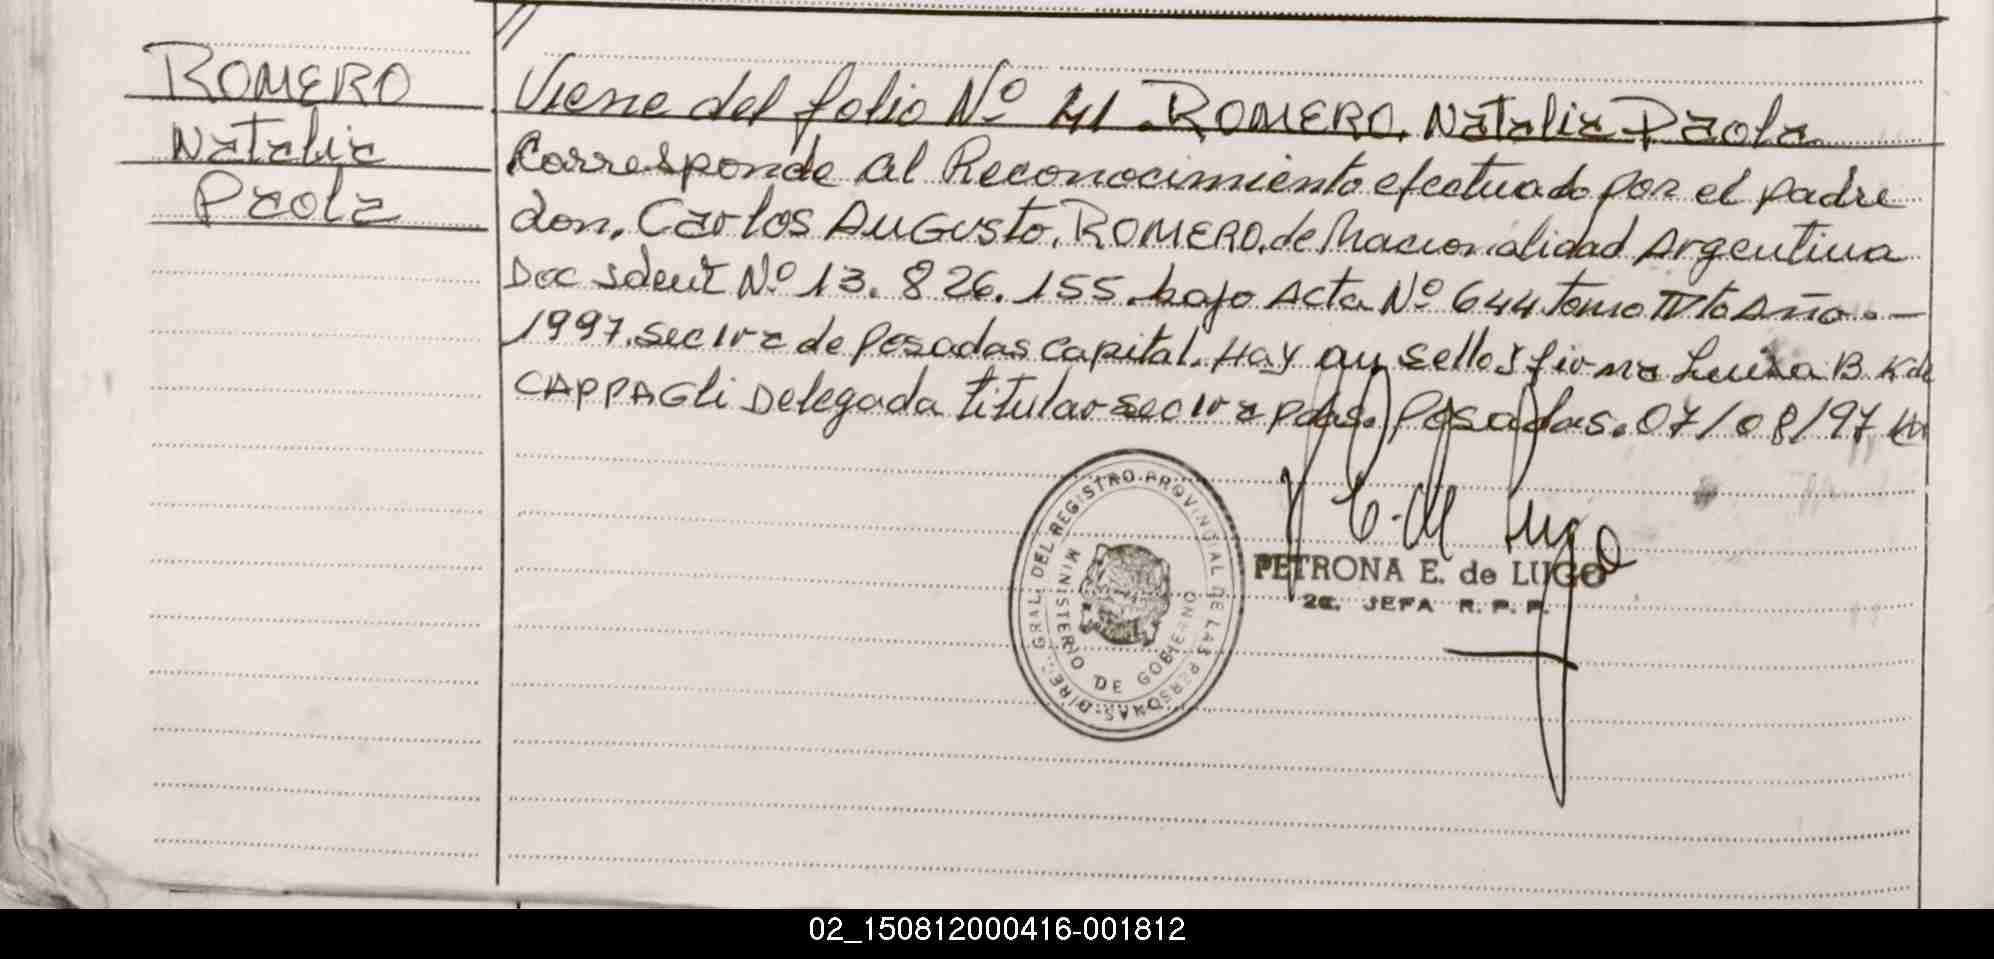 ROMERO
Natalia
Paola
Viene del folio Nº 41. ROMERO, Natalia Paola
Corresponde al Reconocimiento efectuado por el padre
don, Carlos AUGUSto, ROMERO, de Nacionalidad Argentina
Doc Ident Nº 13.826.155. bajo Acta Nº 644 tomo IV to Año.—
1997. sec 1ra de Posadas capital. Hay un sello y firma Luisa B K de
CAPPAGli Delegada titular sec 1ra pdas. Posadas. 07/08/97
DIREC. GRAL. DEL REGISTRO PROVINCIAL DE LAS PERSONAS
MINISTERIO DE GOBIERNO
E. de Lugo
PETRONA E. de LUGO
2a. JEFA R. P. P.
02_150812000416-001812